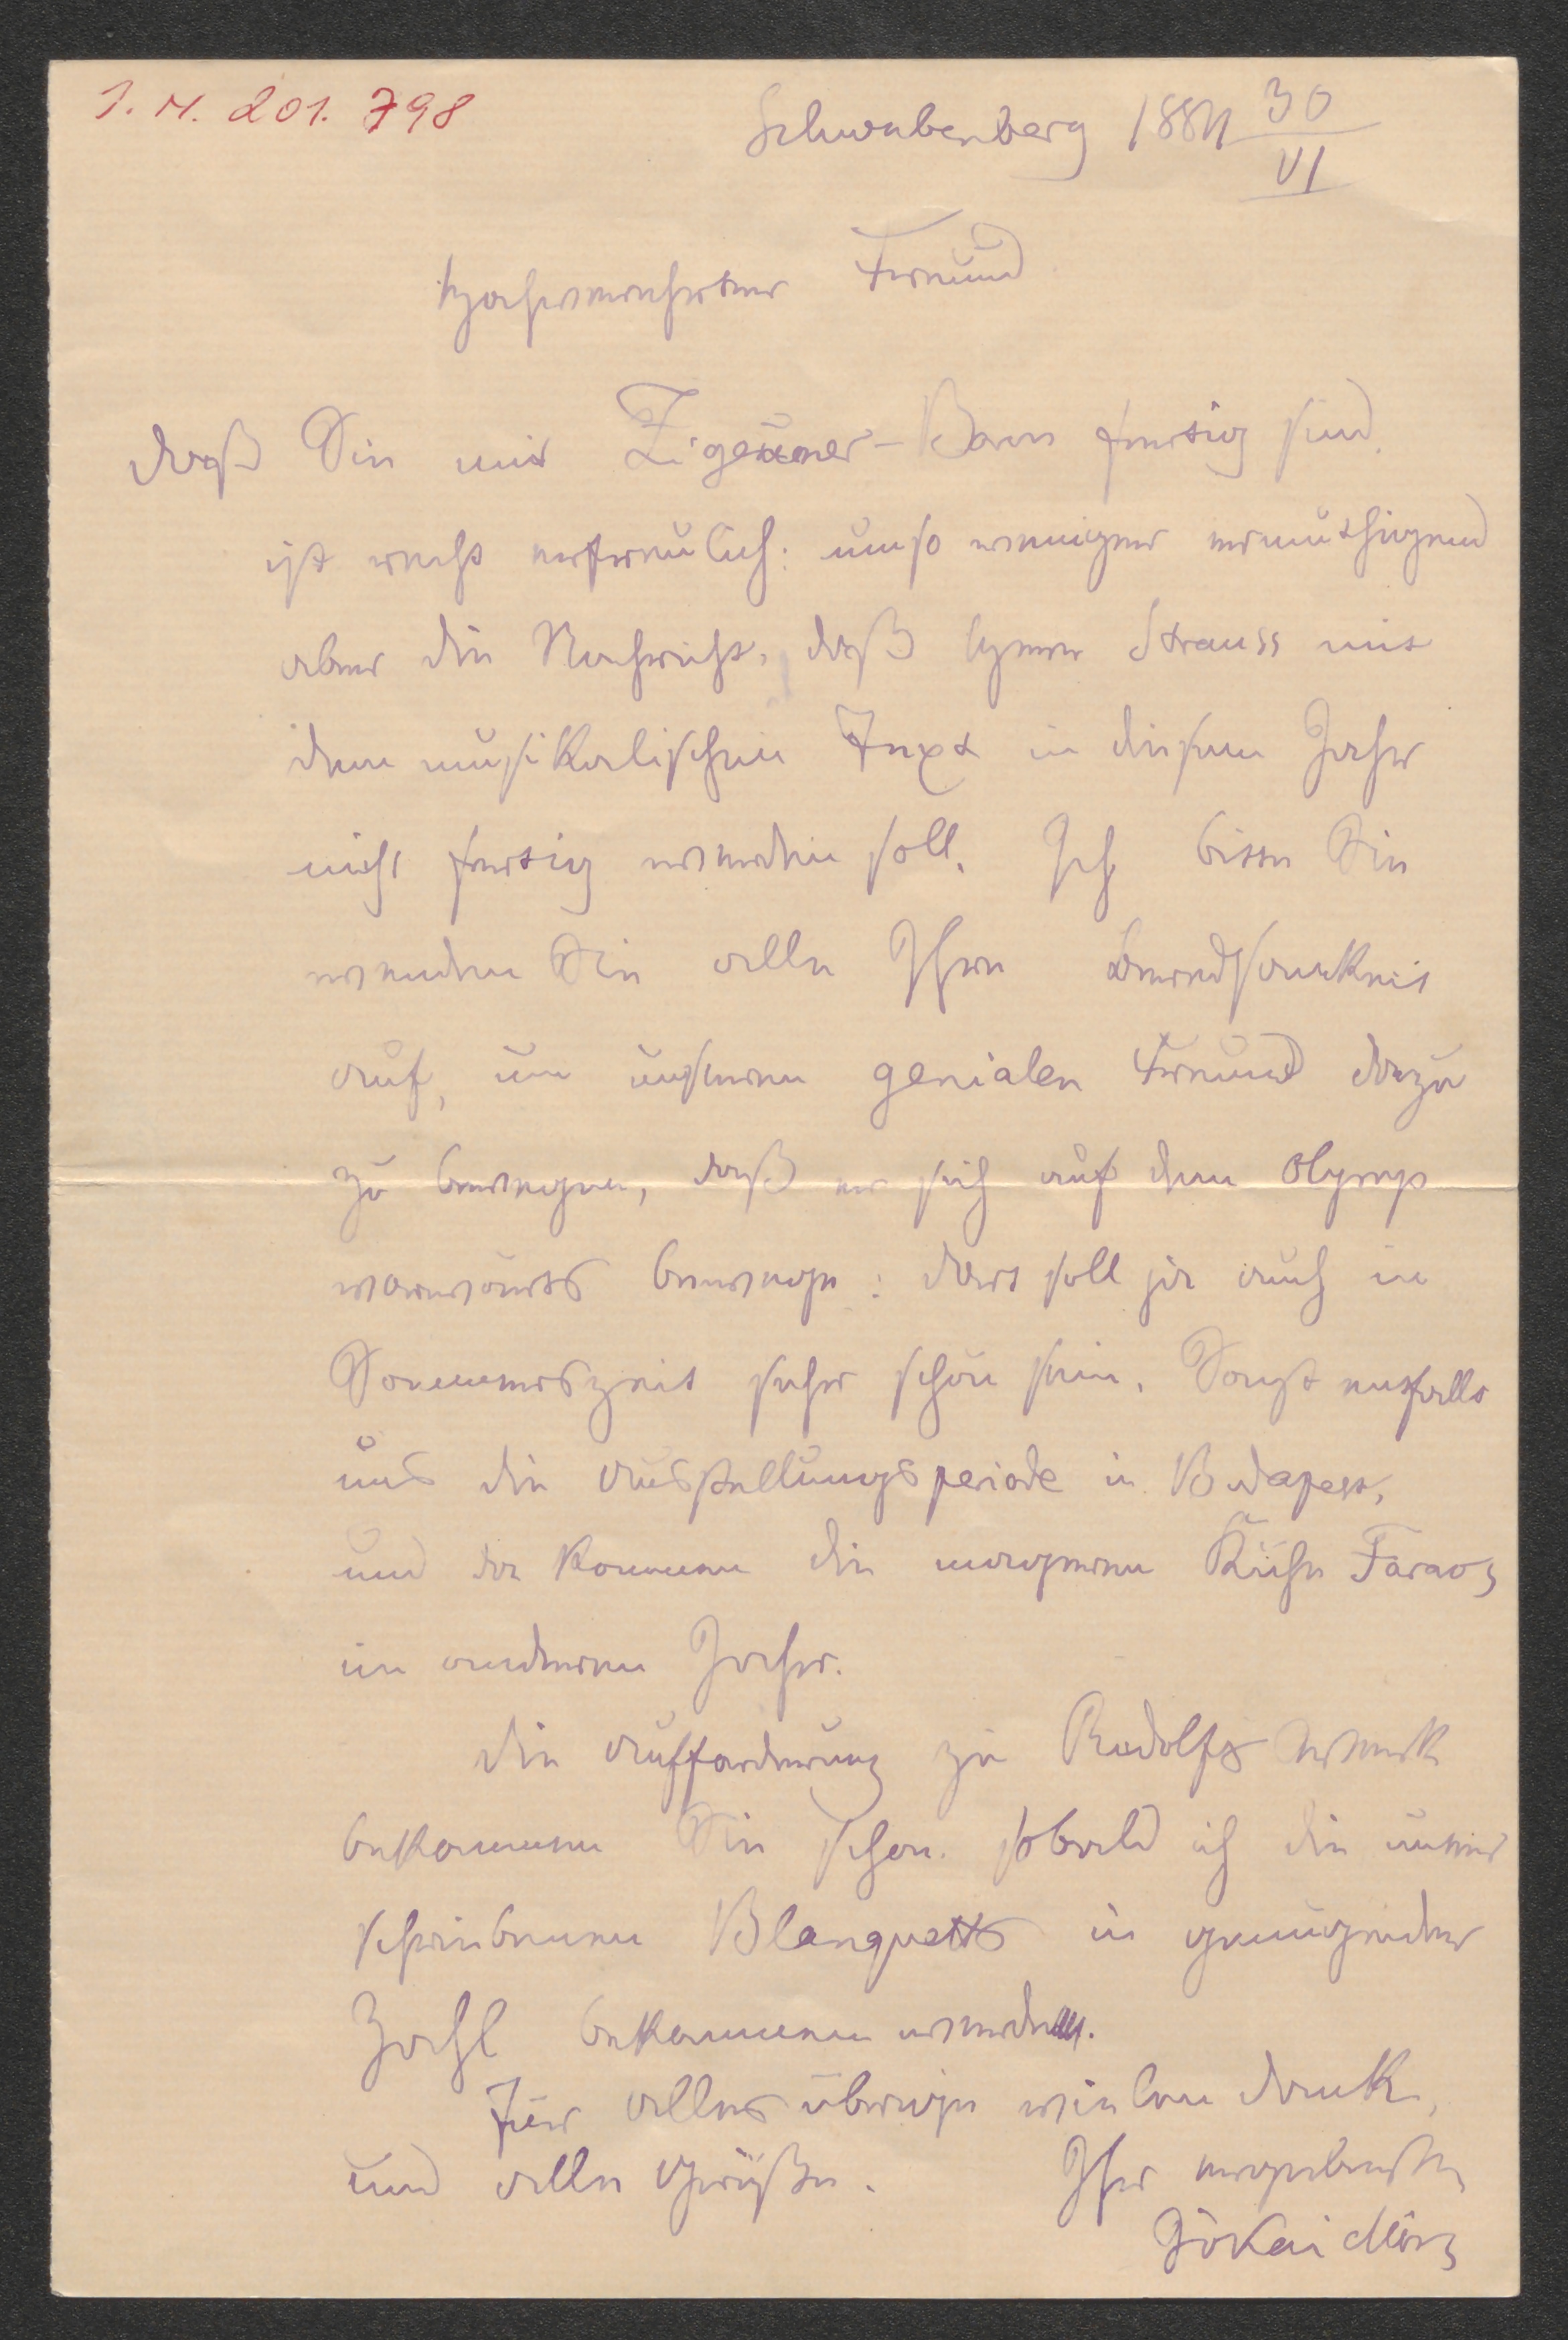 I. N. 201.798
Schwabenberg 1884 30/VI
Hochverehrter Freund
daß Sie mit Zigeuner-Baron fertig sind,
ist recht erfreulich: umso weniger ermuthigend
aber die Nachricht, daß Herr Strauss mit
dem musikalischen Text in diesem Jahr
nicht fertig werden soll. Ich bitte Sie
wenden Sie alle Ihre Beredsamkeit
auf, um unseren genialen Freund dazu
zu bewegen, daß er sich auf den Olymp
vorwärts bewege: dort soll ja auch in
Sommerszeit sehr schön sein. Sonst entfalle
uns die Ausstellungsperiode in Budapest,
und da kommen die mageren Kühe Faraos
im anderen Jahr.
Die Aufforderung zu Rudolfs Werk
bekommen Sie schon. sobald ich die unter
schriebenen Blanquetts in genügender
Zahl bekommen werde.
Für alles übrige vielen Dank,
und alle Grüße. Ihr ergebenster
Jókai Mór